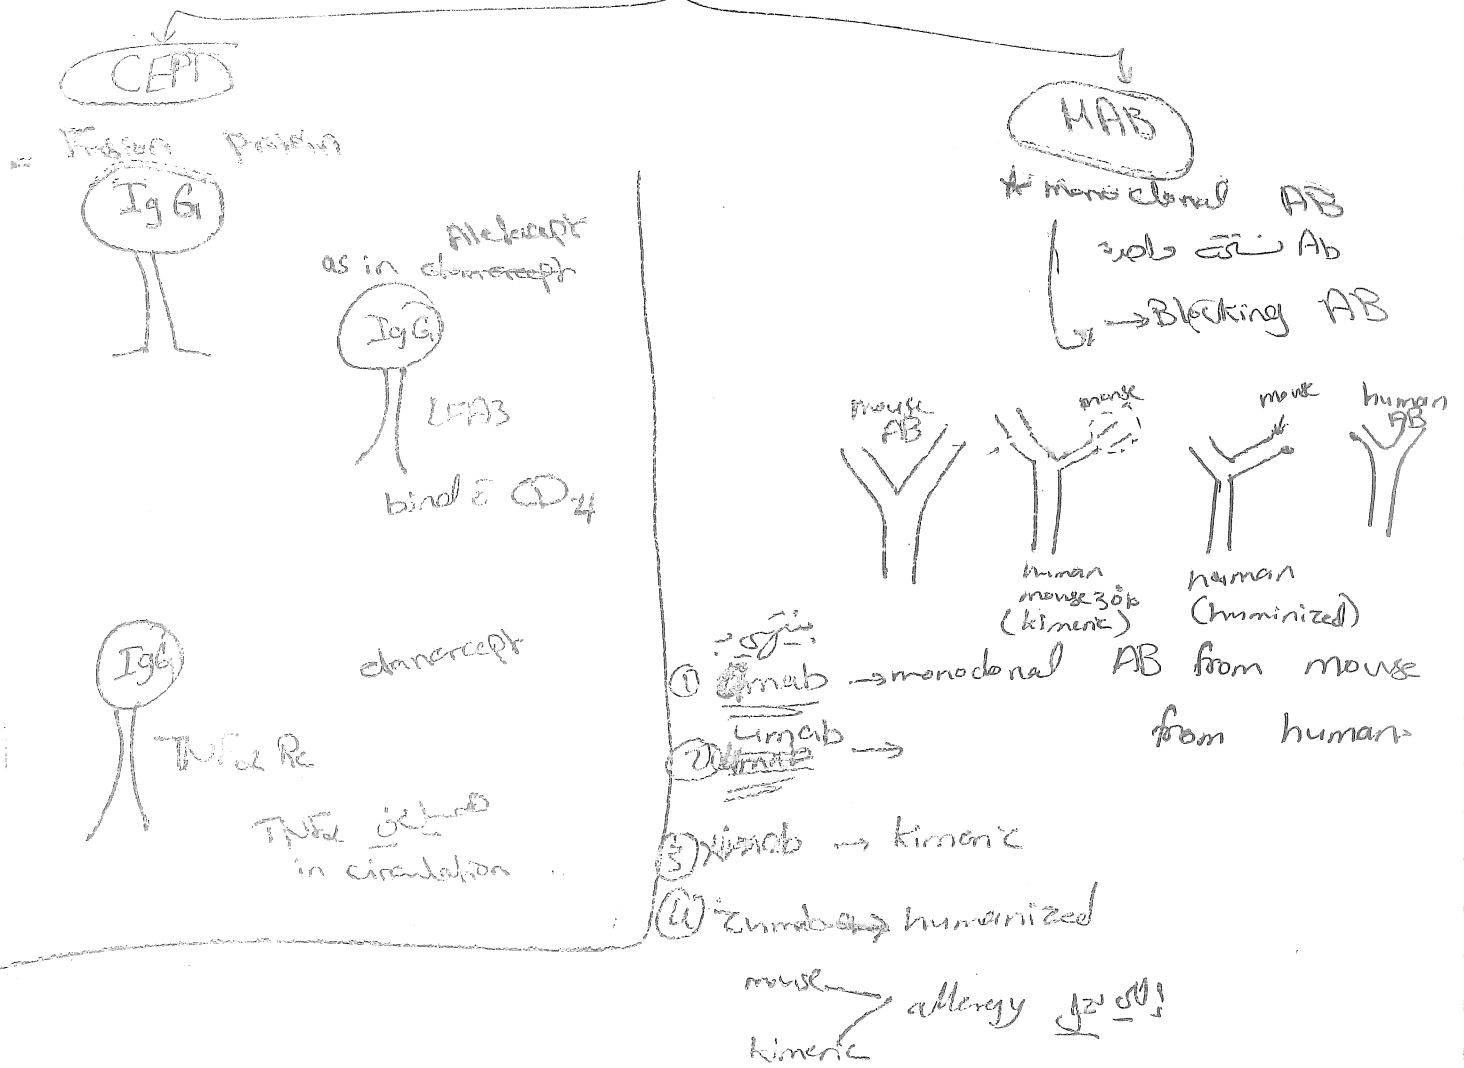 CEPT
- Fusion protein
IgG
Alefacept
as in etanercept
IgG
LFA3
bind c̄ CD4
IgG
etanercept
TNFα Rc
TNFα
in circulation
MAB
* monoclonal AB
Ab
→ Blocking AB
mouse
AB
mouse
human
mouse
(kimeric)
mouse
human
(huminized)
human
AB
① omab → monoclonal AB from mouse
② umab → from human
③ ximab → kimeric
④ zumab → humanized
mouse
kimeric
allergy